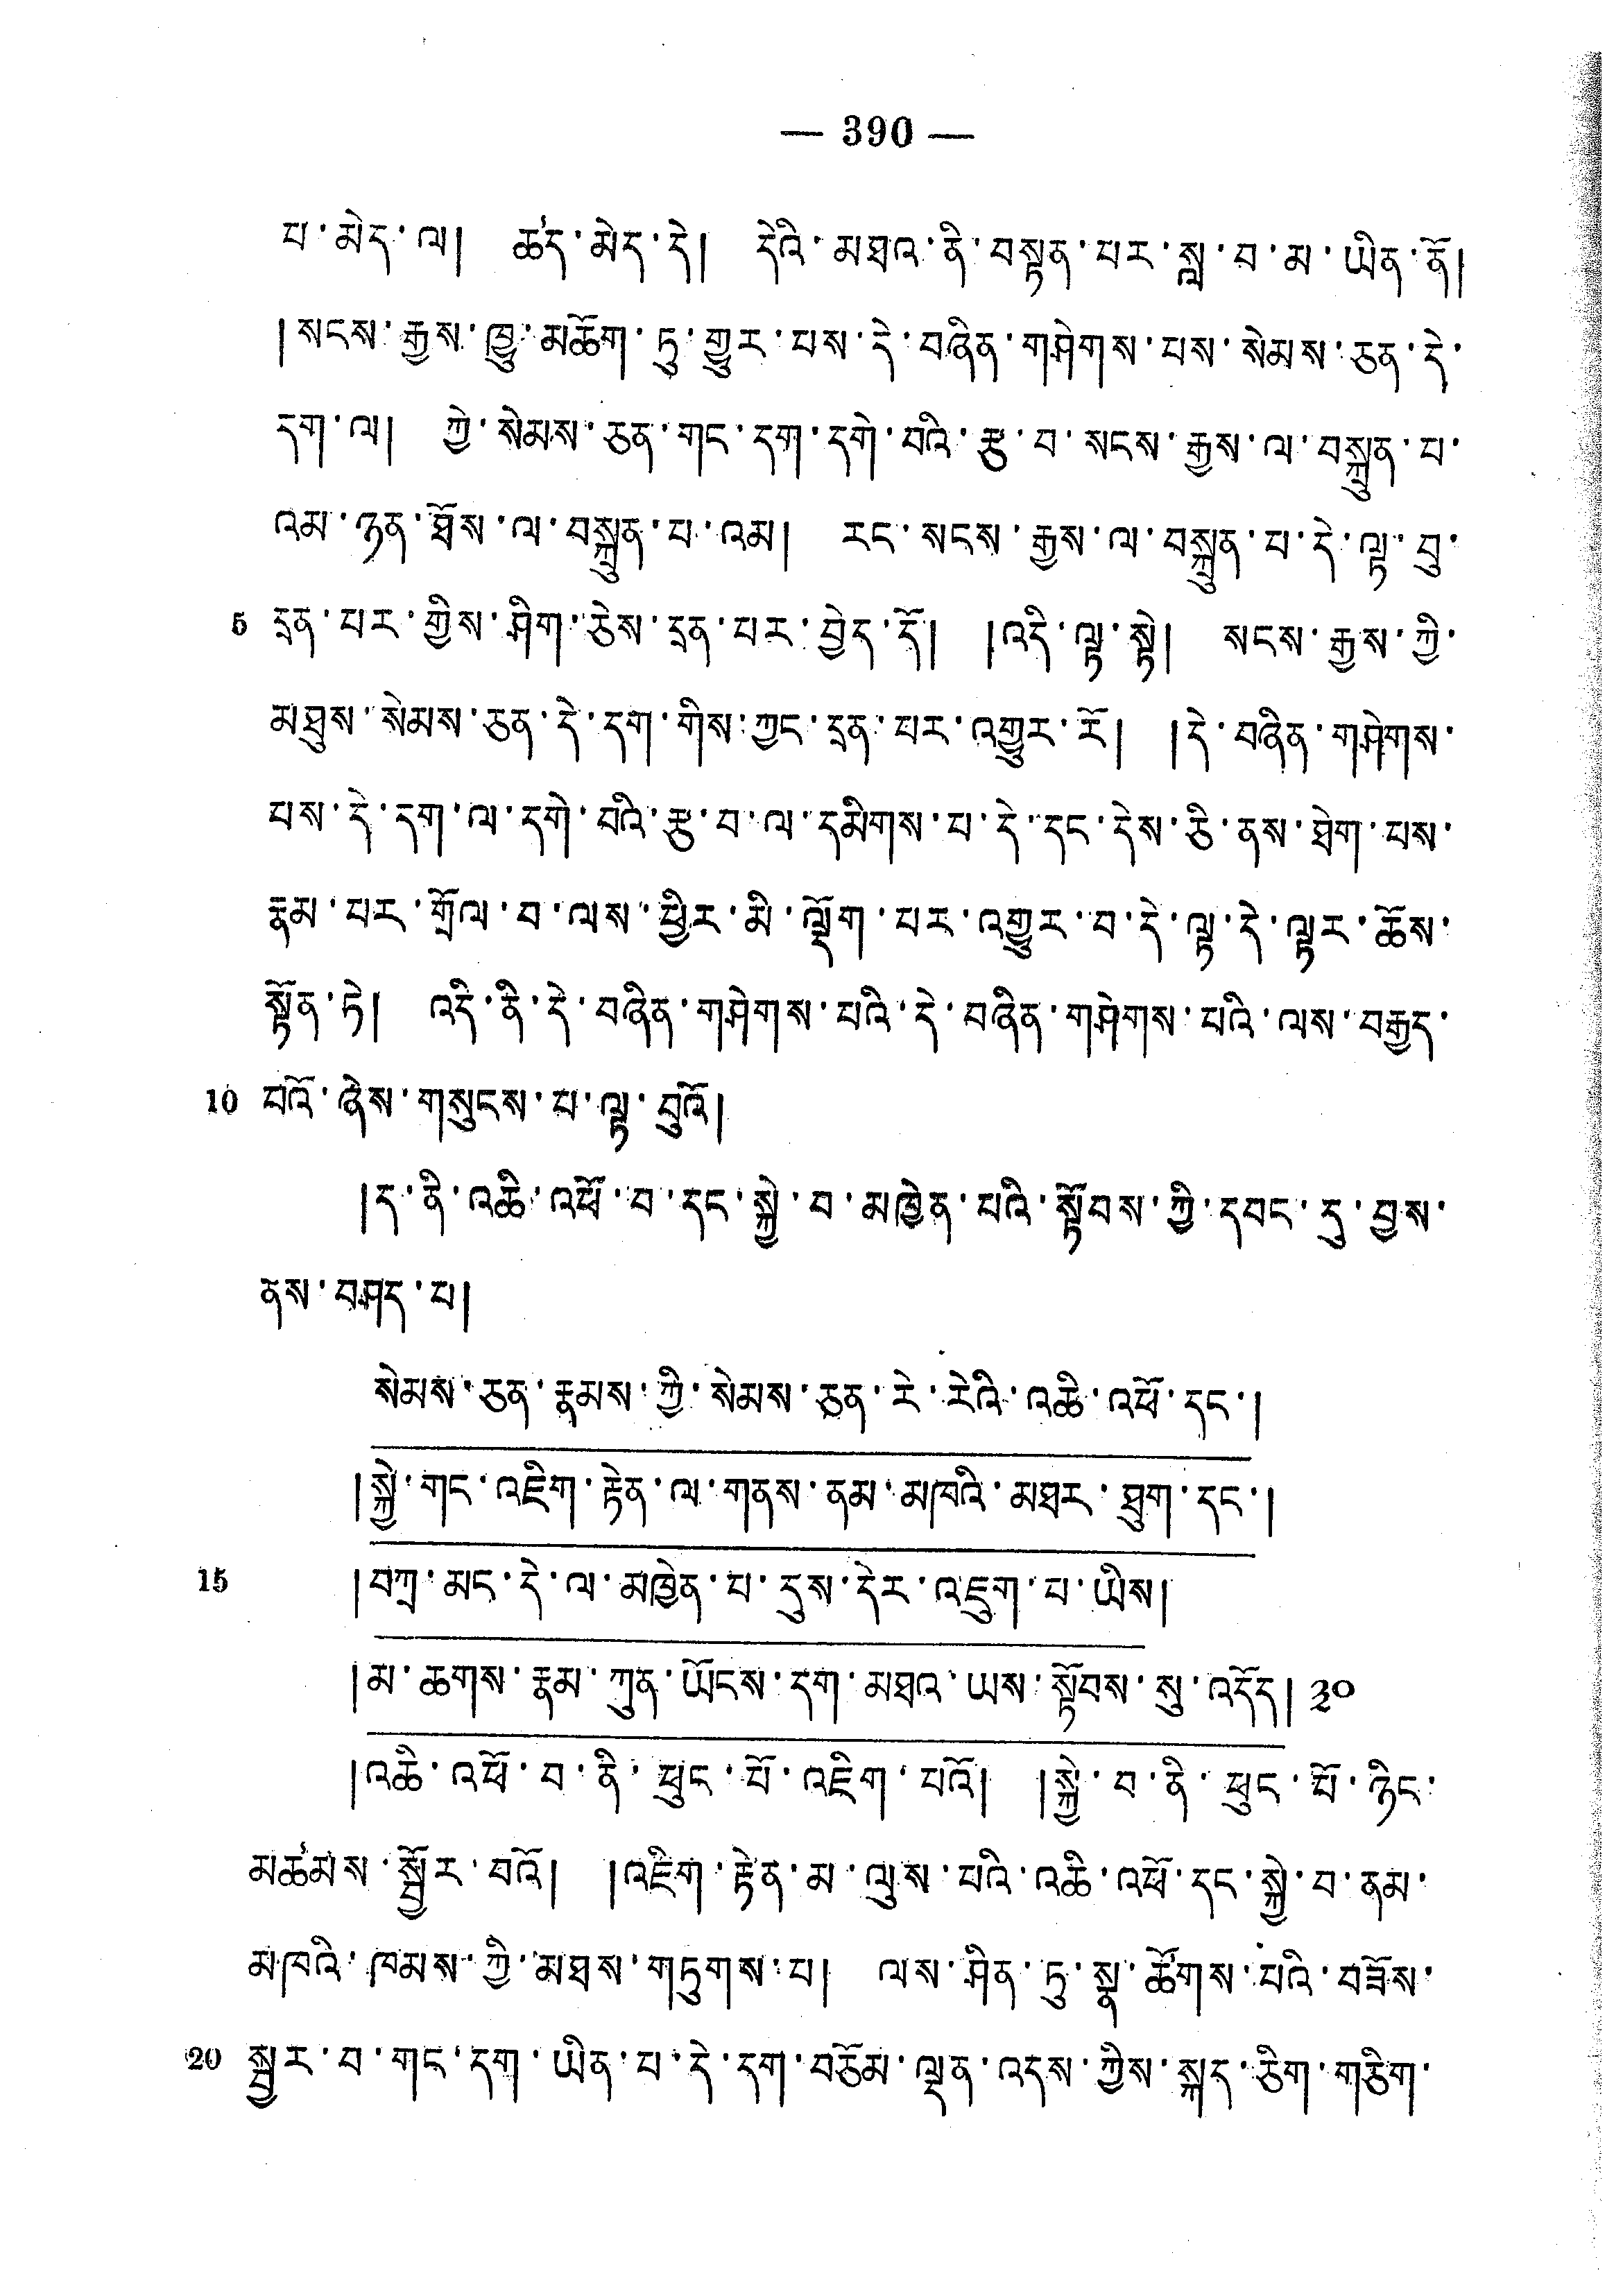 — 390 —
པ་མེད་ལ། ཚད་མེད་དེ། དེའི་མཐའ་ནི་བསྟན་པར་སླ་བ་མ་ཡིན་ནོ།
།སངས་རྒྱས་ཁྱུ་མཆོག་ཏུ་གྱུར་པས་དེ་བཞིན་གཤེགས་པས་སེམས་ཅན་དེ་
དག་ལ། ཀྱེ་སེམས་ཅན་གང་དག་དགེ་བའི་རྩ་བ་སངས་རྒྱས་ལ་བསྐྲུན་པ་
འམ་ཉན་ཐོས་ལ་བསྐྲུན་པ་འམ། རང་སངས་རྒྱས་ལ་བསྐྲུན་པ་དེ་ལྟ་བུ་
5 དྲན་པར་གྱིས་ཤིག་ཅེས་དྲན་པར་བྱེད་དོ། །འདི་ལྟ་སྟེ། སངས་རྒྱས་ཀྱི་
མཐུས་སེམས་ཅན་དེ་དག་གིས་ཀྱང་དྲན་པར་འགྱུར་རོ། །དེ་བཞིན་གཤེགས་
པས་དེ་དག་ལ་དགེ་བའི་རྩ་བ་ལ་དམིགས་པ་དེ་དང་དེས་ཅི་ནས་ཐེག་པས་
རྣམ་པར་གྲོལ་བ་ལས་ཕྱིར་མི་ལྡོག་པར་འགྱུར་བ་དེ་ལྟ་དེ་ལྟར་ཆོས་
སྟོན་ཏེ། འདི་ནི་དེ་བཞིན་གཤེགས་པའི་དེ་བཞིན་གཤེགས་པའི་ལས་བརྒྱད་
10 པའོ་ཞེས་གསུངས་པ་ལྟ་བུའོ།
།ད་ནི་འཆི་འཕོ་བ་དང་སྐྱེ་བ་མཁྱེན་པའི་སྟོབས་ཀྱི་དབང་དུ་བྱས་
ནས་བཤད་པ།
སེམས་ཅན་རྣམས་ཀྱི་སེམས་ཅན་རེ་རེའི་འཆི་འཕོ་དང་།
།སྐྱེ་གང་འཇིག་རྟེན་ལ་གནས་ནམ་མཁའི་མཐར་ཐུག་དང་།
15 །བཀྲ་མང་དེ་ལ་མཁྱེན་པ་དུས་དེར་འཇུག་པ་ཡིས།
།མ་ཆགས་རྣམ་ཀུན་ཡོངས་དག་མཐའ་ཡས་སྟོབས་སུ་འདོད། ༣༠
།འཆི་འཕོ་བ་ནི་ཕུང་པོ་འཇིག་པའོ། །སྐྱེ་བ་ནི་ཕུང་པོ་ཉིང་
མཚམས་སྦྱོར་བའོ། །འཇིག་རྟེན་མ་ལུས་པའི་འཆི་འཕོ་དང་སྐྱེ་བ་ནམ་
མཁའི་ཁམས་ཀྱི་མཐས་གཏུགས་པ། ལས་ཤིན་ཏུ་སྣ་ཚོགས་པའི་བཟོས་
20 སྦྱར་བ་གང་དག་ཡིན་པ་དེ་དག་བཅོམ་ལྡན་འདས་ཀྱིས་སྐད་ཅིག་གཅིག་